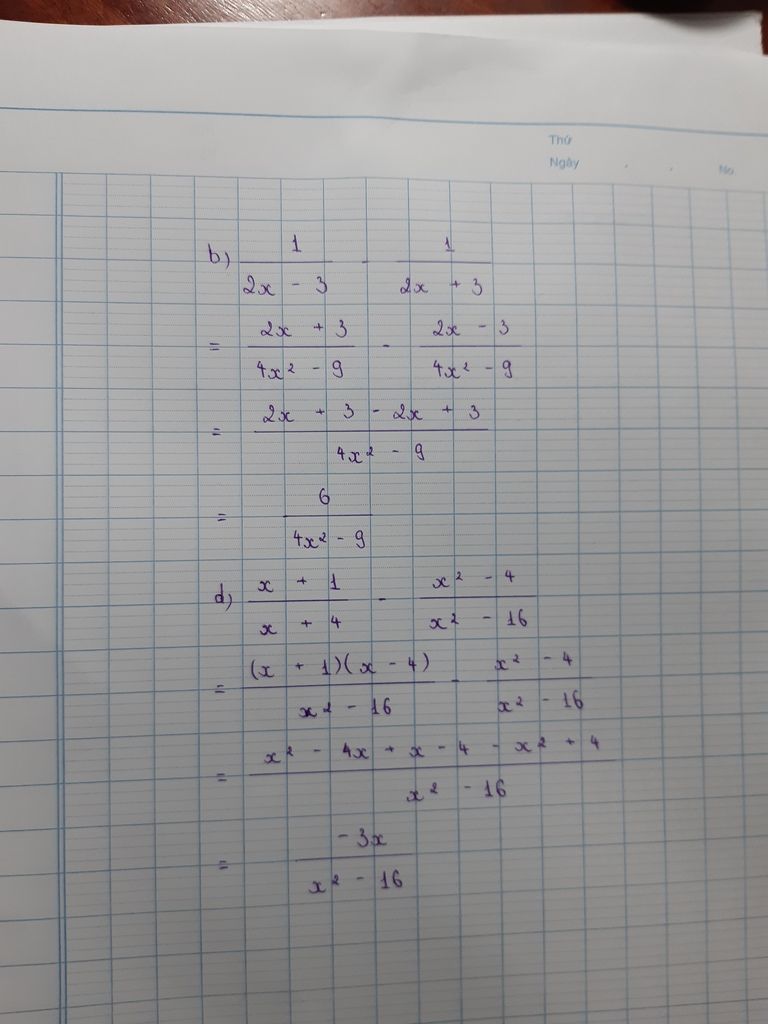 Thứ
Ngày . . No.
b) 1/(2x - 3) - 1/(2x + 3)
= (2x + 3)/(4x² - 9) - (2x - 3)/(4x² - 9)
= (2x + 3 - 2x + 3)/(4x² - 9)
= 6/(4x² - 9)
d) (x + 1)/(x + 4) - (x² - 4)/(x² - 16)
= (x + 1)(x - 4)/(x² - 16) - (x² - 4)/(x² - 16)
= (x² - 4x + x - 4 - x² + 4)/(x² - 16)
= -3x/(x² - 16)